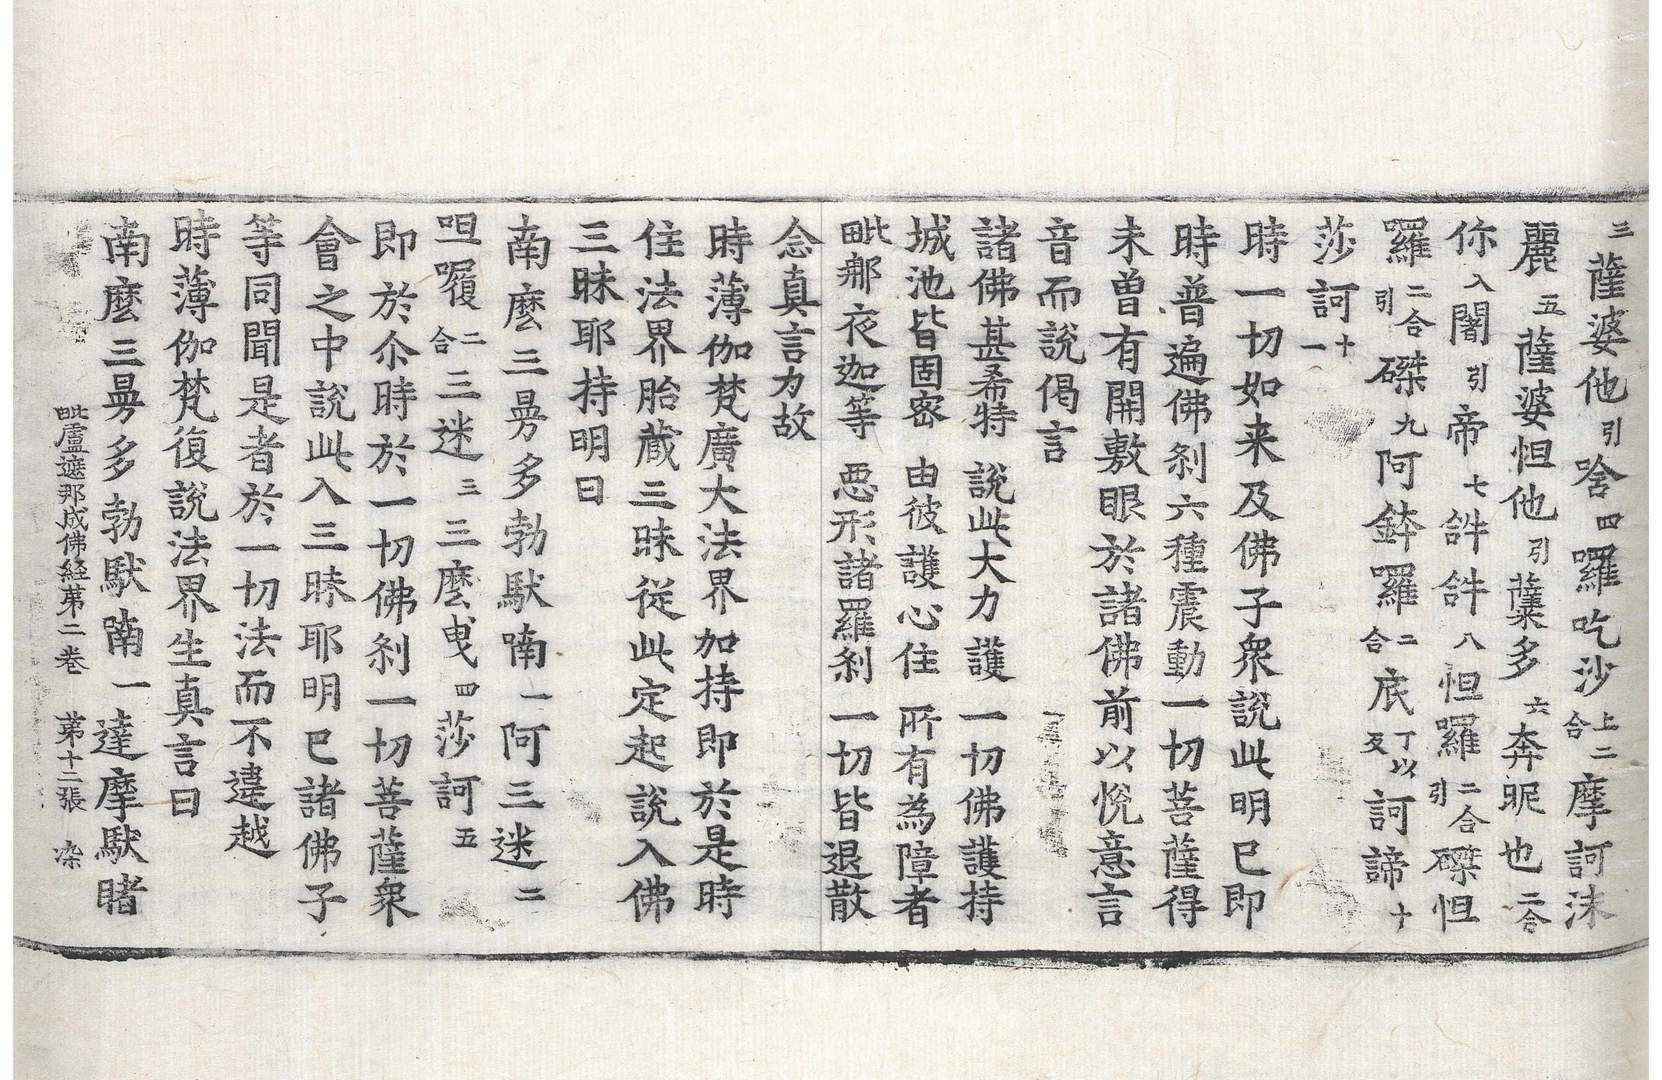 三薩婆他引唅四囉吃沙上二合摩訶沫
麗五薩婆怛他引蘖多六奔昵也二合
你入闍引帝七𤙖𤙖八怛羅二合引磔怛
羅二合引磔九阿鉢羅二合底丁以反訶諦十
莎訶十一
時一切如来及佛子衆說此明已即
時普遍佛剎六種震動一切菩薩得
未曾有開敷眼於諸佛前以悅意言
音而說偈言
諸佛甚希特 說此大力護 一切佛護持
城池皆固密 由彼護心住 所有為障者
毗那夜迦等 惡形諸羅剎 一切皆退散
念真言力故
時薄伽梵廣大法界加持即於是時
住法界胎藏三昧從此定起說入佛
三昧耶持明曰
南麼三曼多勃馱喃一阿三迷二
呾㘑二合三迷三三麼曳四莎訶五
即於尒時於一切佛剎一切菩薩衆
會之中說此入三昧耶明已諸佛子
等同聞是者於一切法而不違越
時薄伽梵復說法界生真言曰
南麼三曼多勃馱喃一達摩馱睹
毗盧遮那成佛経第二卷 第十二張 染